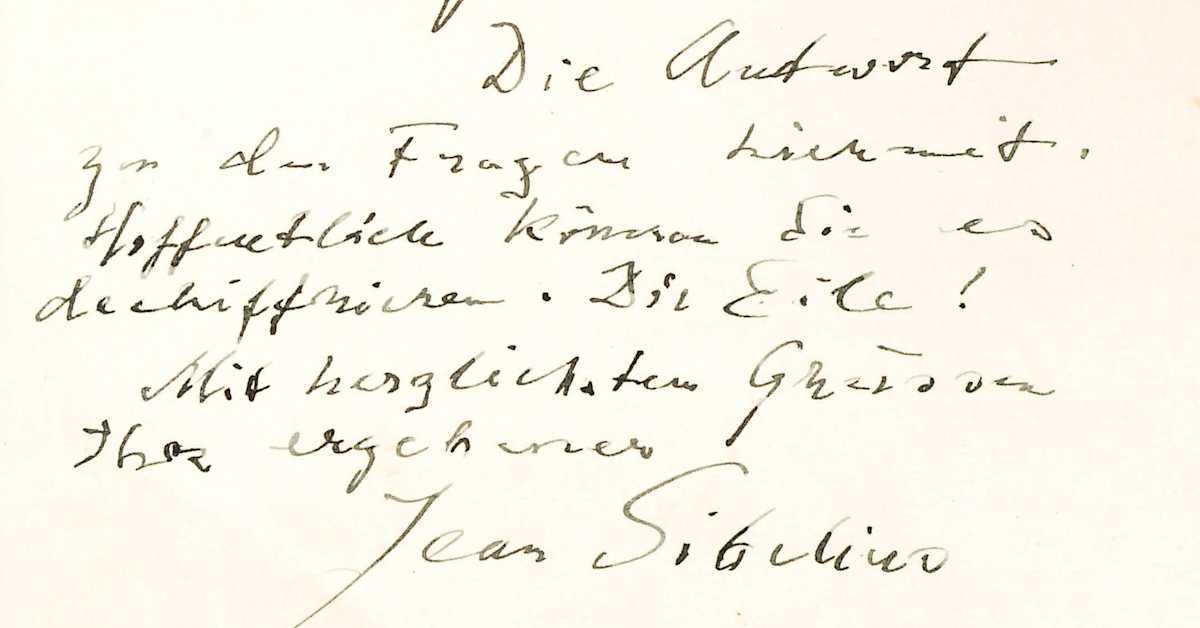 Die Antwort
zu den Fragen hiermit.
Hoffentlich können Sie es
dechiffrieren. Die Eile!
Mit herzlichstem Grüssen
Ihr ergebener
Jean Sibelius